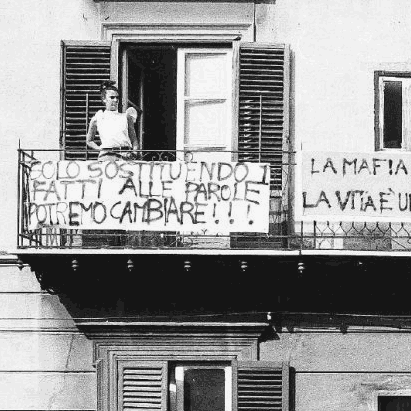 SOLO SOSTITUENDO I
FATTI ALLE PAROLE
POTREMO CAMBIARE!!!
LA MAFIA
LA VITA È